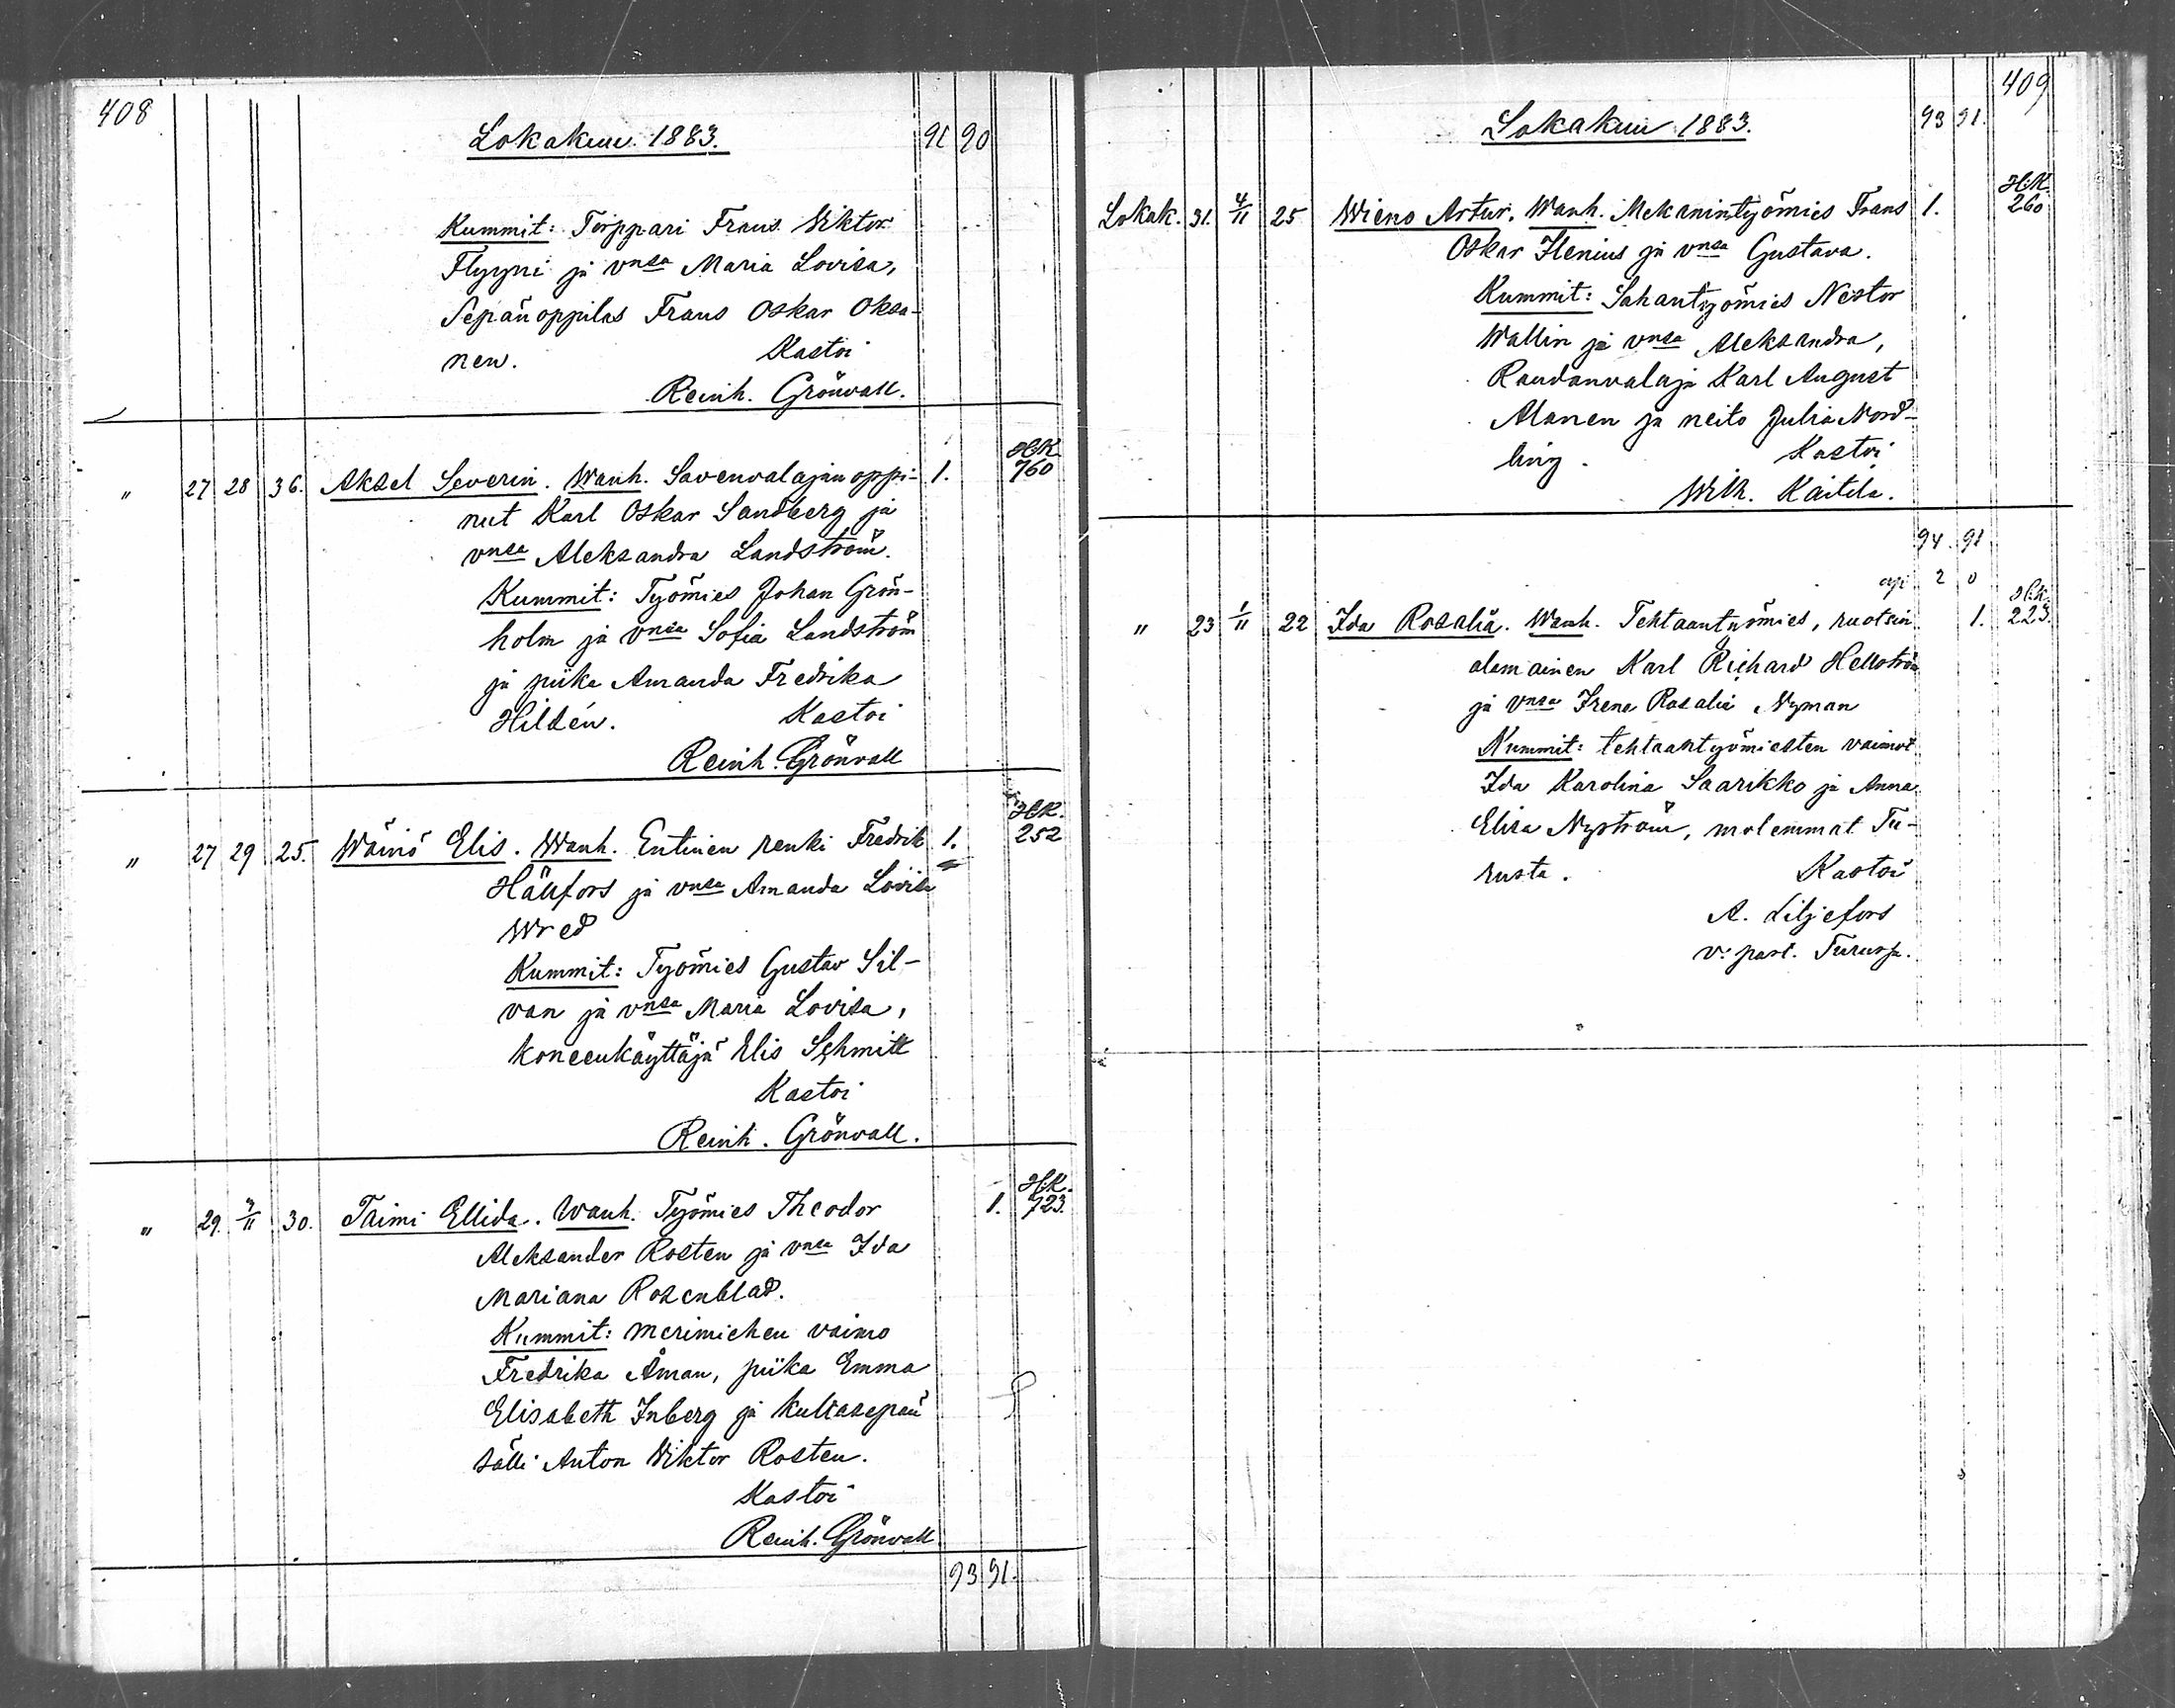 408
Lokakuu 1883. 91 90
Kummit: Torppari Frans Viktor
Flyyni ja vnsa Maria Lovisa,
Sepänoppilas Frans Oskar Oksa-
nen. Kastoi
Reinh. Grönvall.
H.K.
" 27 28 36. Aksel Severin. Wanh. Savenvalajan oppi- 1. 760
nut Karl Oskar Sandberg ja
vnsa Aleksandra Landström.
Kummit: Työmies Johan Grön-
holm ja vnsa Sofia Landström
ja piika Amanda Fredrika
Hildén. Kastoi
Reinh. Grönvall
H.K.
" 27 29 25. Wäinö Elis. Wanh. Entinen renki Fredrik 1. 252
Hällfors ja vnsa Amanda Lovisa
Wred
Kummit: Työmies Gustav Sil-
van ja vnsa Maria Lovisa,
koneenkäyttäjä Elis Schmitt
Kastoi
Reinh. Grönvall.
H.K.
" 29. /11 30. Taimi Ellida. Wanh. Työmies Theodor 1. 723.
Aleksander Rosten ja vnsa Ida
Mariana Rosenblad.
Kummit: Merimiehen vaimo
Fredrika Åman, piika Emma
Elisabeth Inberg ja kultasepän
sälli Anton Viktor Rosten.
Kastoi
Reinh. Grönvall
93 91.
409
Lokakuu 1883. 93 91.
H.K.
Lokak. 31. 4/11 25 Wieno Artur. Wanh. Mekanintyömies Frans 1. 260
Oskar Ilenius ja vnsa Gustava.
Kummit: Sahantyömies Nestor
Wallin ja vnsa Aleksandra,
Raudanvalaja Karl August
Alanen ja neito Julia Nord-
ling. Kastoi
Wilh. Kaitila.
94. 91
äpi 2 0
H.K.
" 23 1/11 22 Ida Rosalia. Wanh. Tehtaantyömies, ruotsin 1. 223.
alamainen Karl Richard Hellström
ja vnsa Irene Rosalia Nyman
Kummit: tehtaantyömiesten vaimot
Ida Karolina Saarikko ja Anna
Elisa Nyström, molemmat Tu-
rusta. Kastoi
A. Liljefors
v. past. Turussa.